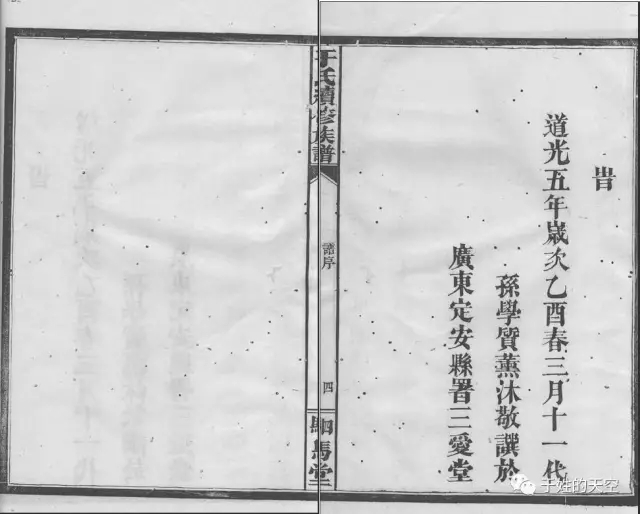 旹
道光五年歲次乙酉春三月十一代
孫學質薰沐敬譔於
廣東定安縣署三愛堂
于氏續修族譜
譜序
四
駟馬堂
于姓的天空